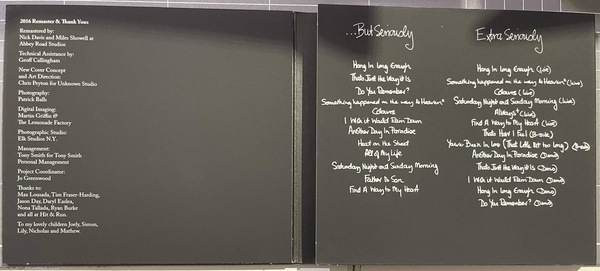 2016 Remaster & Thank Yous
Remastered by:
Nick Davis and Miles Showell at
Abbey Road Studios
Technical Assistance by:
Geoff Callingham
New Cover Concept
and Art Direction:
Chris Peyton for Unknown Studio
Photography:
Patrick Balls
Digital Imaging:
Martin Griffin @
The Lemonade Factory
Photographic Studio:
Elk Studios N.Y.
Management:
Tony Smith for Tony Smith
Personal Management
Project Coordinator:
Jo Greenwood
Thanks to:
Max Lousada, Tim Fraser-Harding,
Jason Day, Daryl Easlea,
Nona Tallada, Ryan Burke
and all at Hit & Run.
To my lovely children Joely, Simon,
Lily, Nicholas and Mathew.
...But Seriously
Hang In Long Enough
That's Just the Way it Is
Do You Remember?
Something happened on the way to Heaven
Colours
I Wish it Would Rain Down
Another Day In Paradise
Heat on the Street
All of My Life
Saturday Night and Sunday Morning
Father to Son
Find A Way to My Heart
Extra Seriously
Hang In Long Enough (Live)
Something happened on the way to Heaven* (Live)
Colours (Live)
Saturday Night and Sunday Morning (Live)
Always* (Live)
Find A Way to My Heart (Live)
That's How I Feel (B-side)
You've Been In Love (That Little Bit too long) (B-side)
Another Day In Paradise (Demo)
That's Just the Way it Is (Demo)
I Wish it Would Rain Down (Demo)
Hang In Long Enough (Demo)
Do You Remember? (Demo)